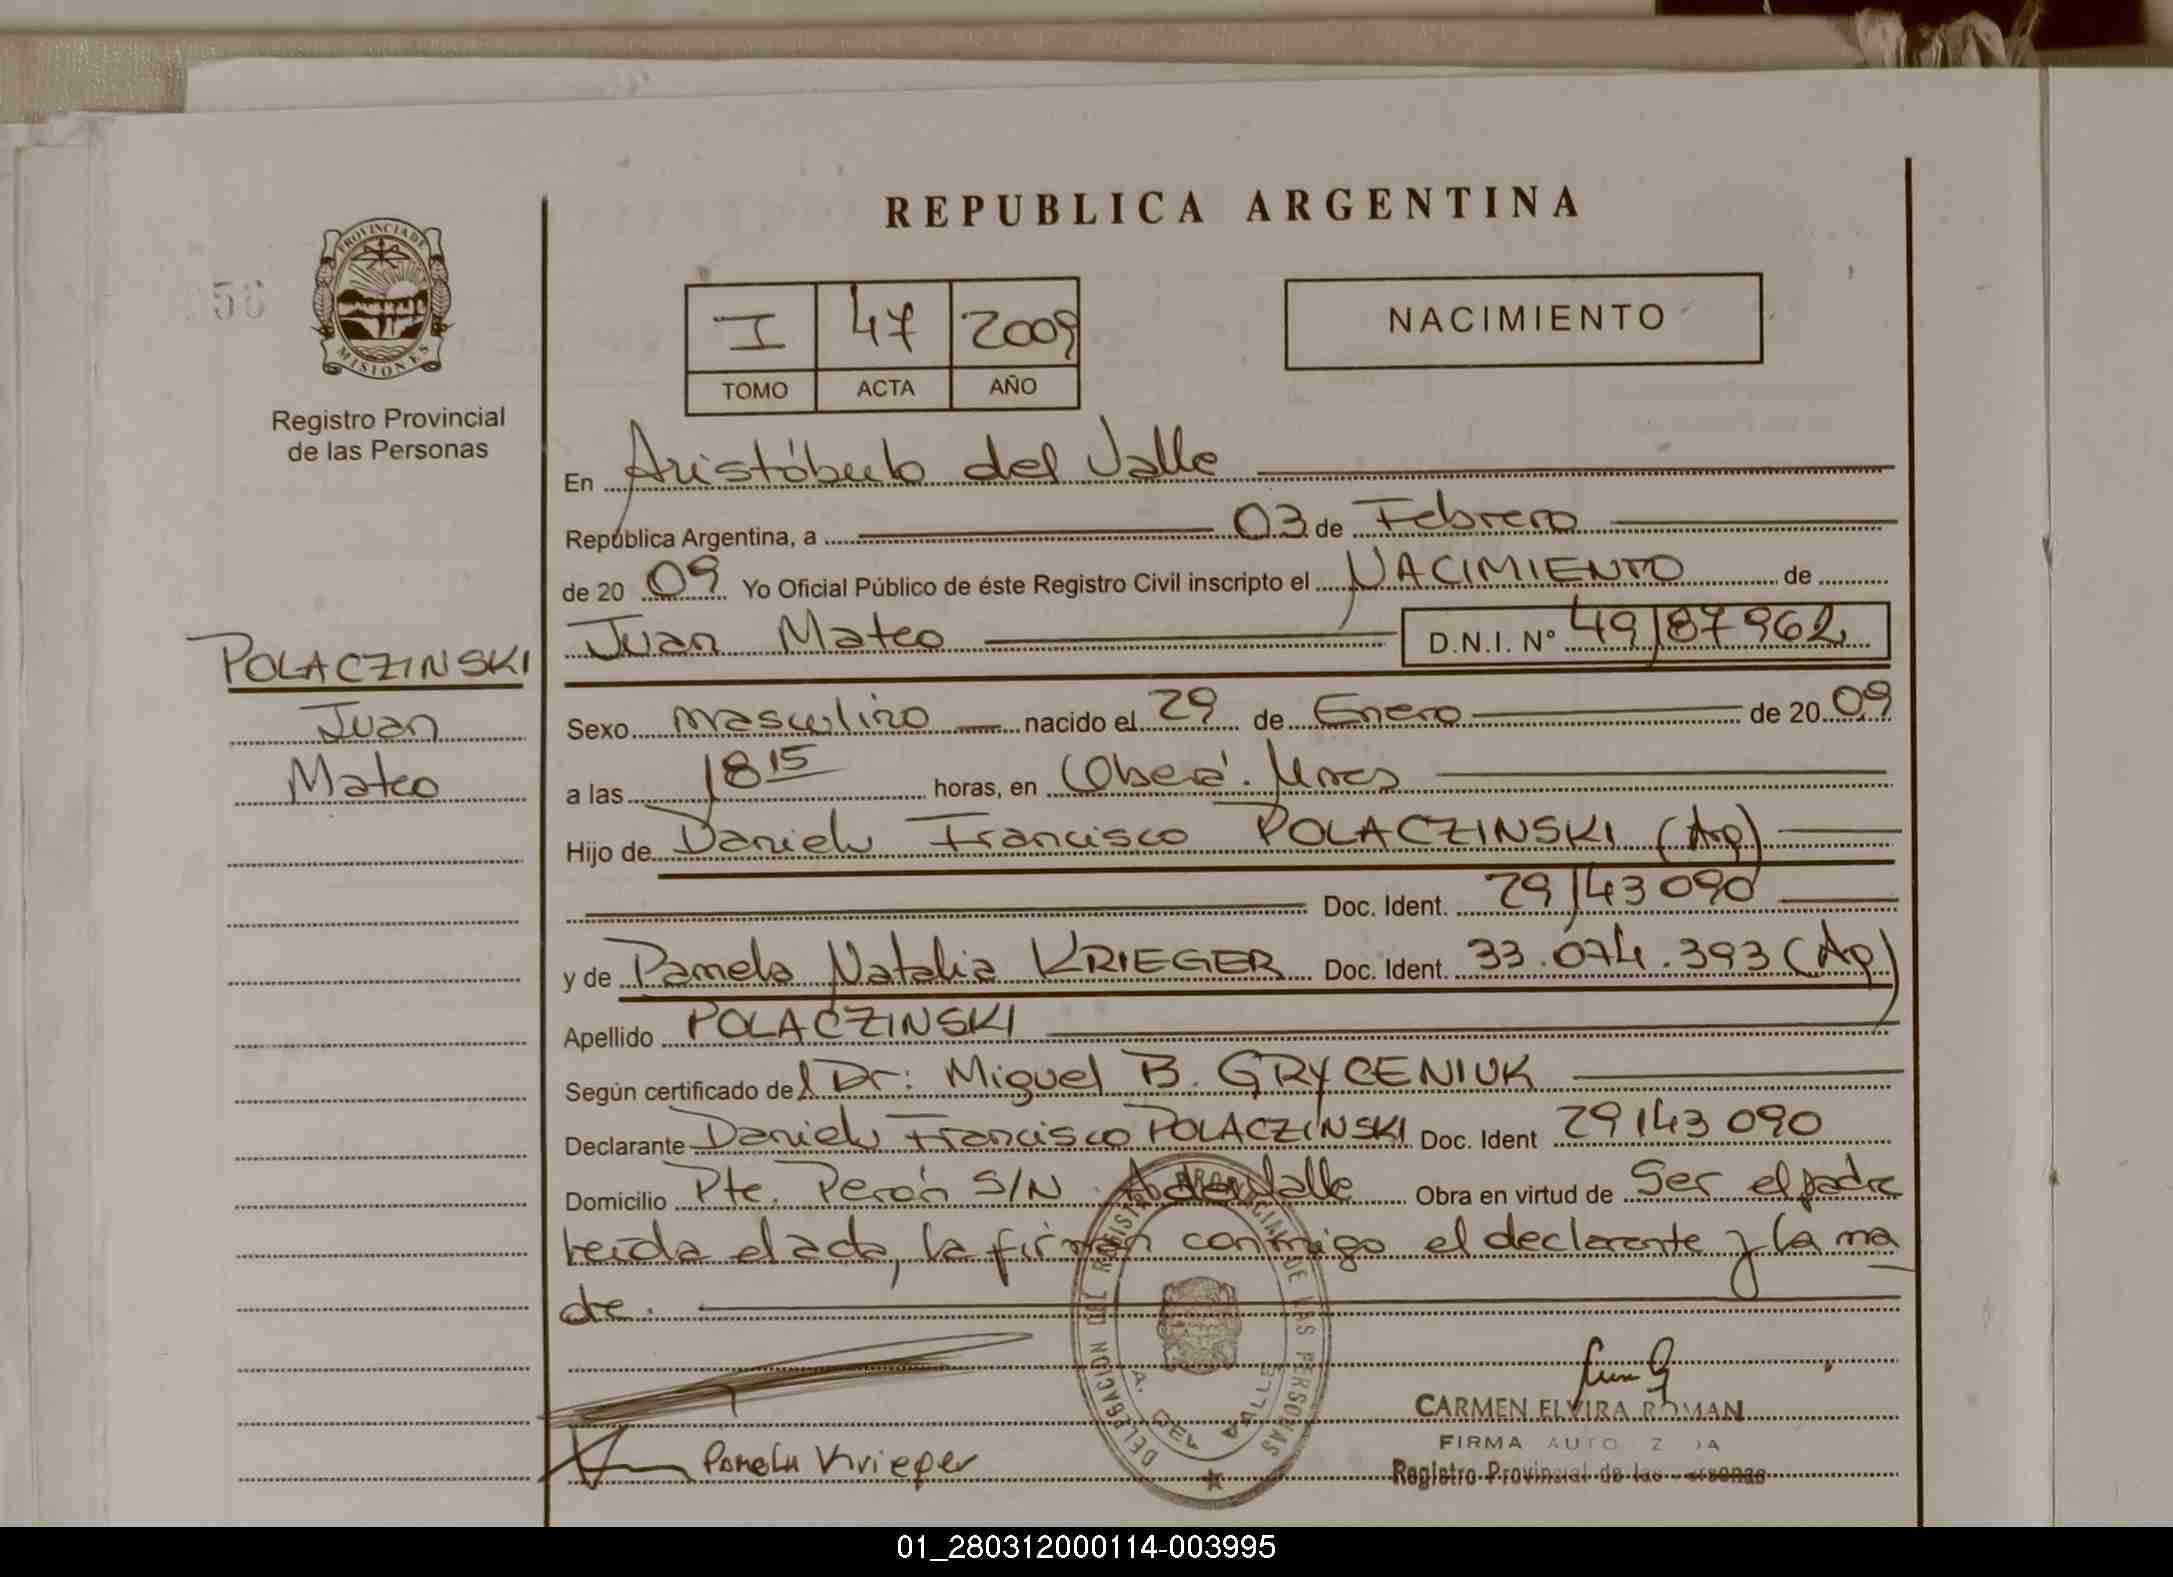 REPUBLICA ARGENTINA
PROVINCIA DE MISIONES
Registro Provincial
de las Personas
I 47 2009
TOMO ACTA AÑO
NACIMIENTO
En Aristóbulo del Valle
República Argentina, a 03 de Febrero
de 20 09 Yo Oficial Público de éste Registro Civil inscripto el NACIMIENTO de
Juan Mateo D.N.I. Nº 49187962
POLACZINSKI
Juan
Mateo
Sexo masculino nacido el 29 de Enero de 20 09
a las 18 15 horas, en Oberá. Mnes
Hijo de Daniel Francisco POLACZINSKI (Ap)
Doc. Ident. 29143090
y de Pamela Natalia KRIEGER Doc. Ident. 33.074.393 (Ap)
Apellido POLACZINSKI
Según certificado del Dr: Miguel B. GRYCENIUK
Declarante Daniel Francisco POLACZINSKI Doc. Ident 29143090
Domicilio Pte. Perón S/N A. del Valle Obra en virtud de Ser el padre
leida el acta, la firman conmigo el declarante y la ma
dre.
DELEGACION DEL REGISTRO PROVINCIAL DE LAS PERSONAS
A. DEL VALLE
Pamela Krieger
CARMEN ELVIRA ROMAN
FIRMA AUTORIZADA
Registro Provincial de las Personas
01_280312000114-003995